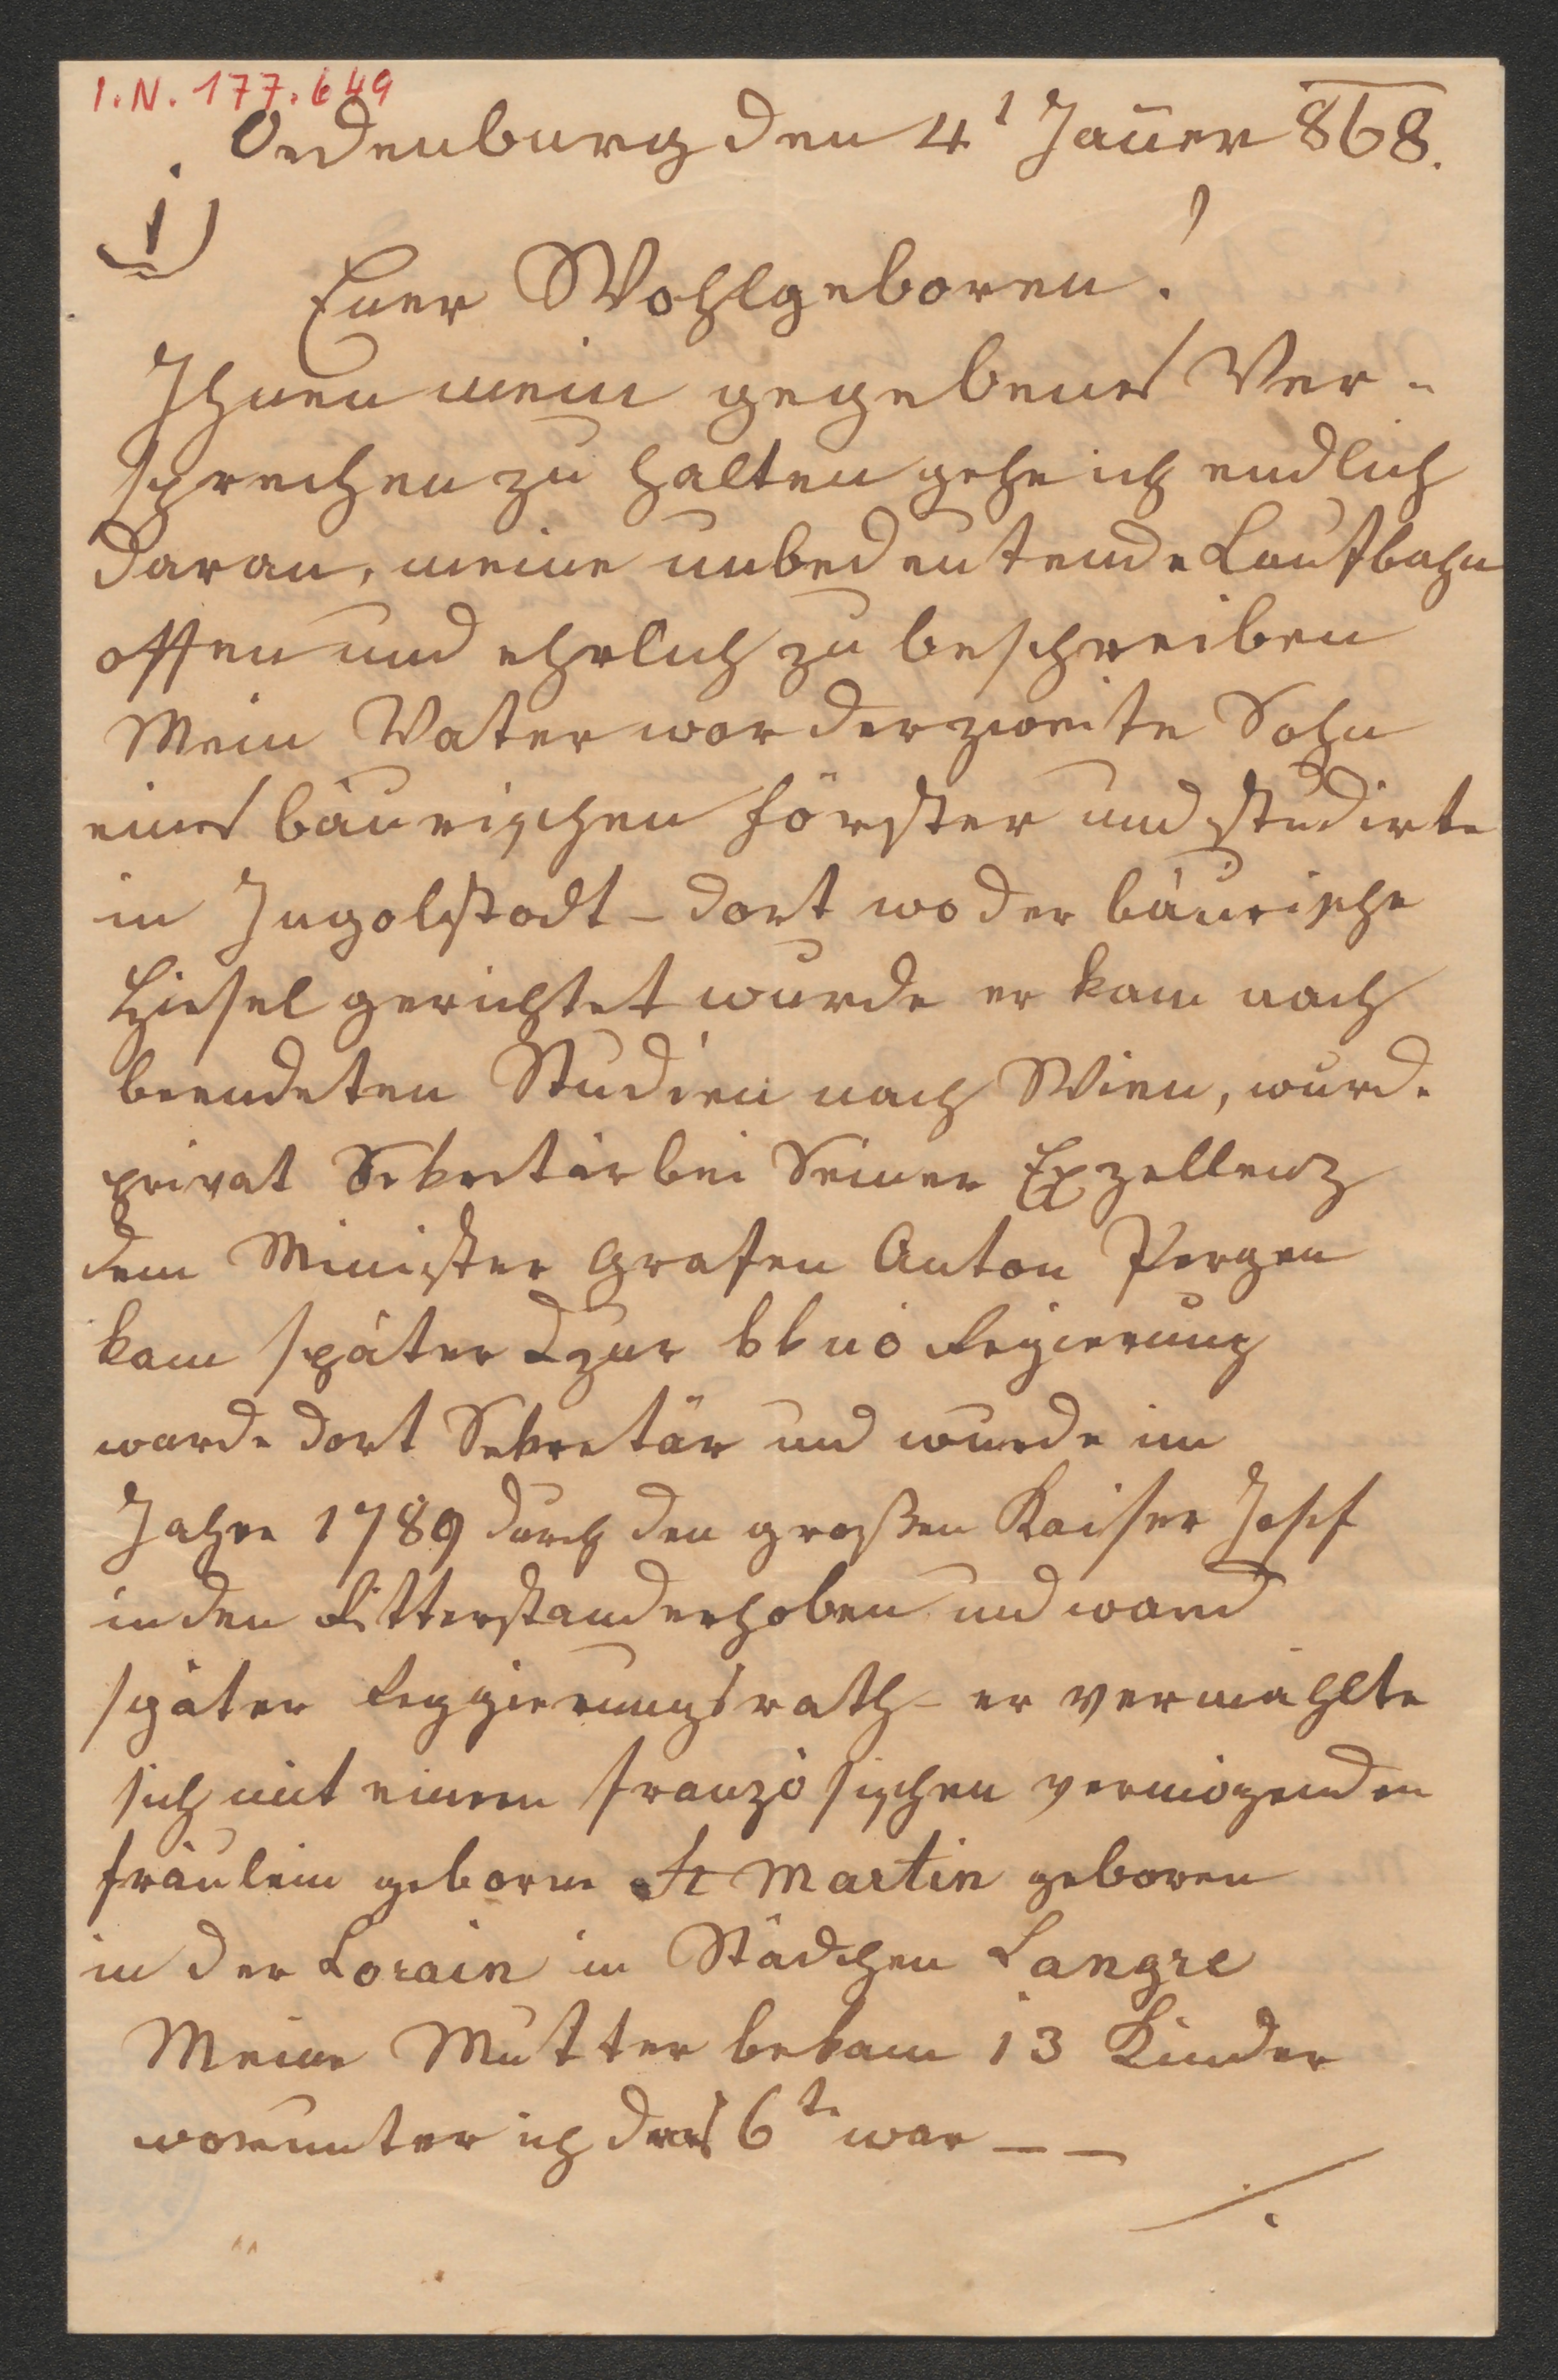 I.N. 177.649
Oedenburg den 4t Jañer 868.
1
Euer Wohlgeboren!
Ihnen mein gegebenes Ver-
sprechen zu halten gehe ich endlich
daran, meine unbedeutende Laufbahn
offen und ehrlich zu beschreiben
Mein Vater war der zweite Sohn
eines bäurischen Förster und studirte
in Ingolstadt – dort wo der bäurische
Hiesel gerichtet wurde er kam nach
beendeten Studien nach Wien, wurde
privat Sekretär bei Seiner Exzellenz
dem Minister Grafen Anton Pergen
kam später zur kk nö Regierung
warde dort Sekretär und wurde im
Jahre 1789 durch den großen Kaiser Josef
in den Ritterstand erhoben und ward
später Reggierungsrath – er vermählte
sich mit einem französischen vermögenden
Fräulein geborne St Martin geboren
in der Lorain in Städchen Langre
Meine Mutter bekam 13 Kinder
worunter ich das 6te war — —
./.